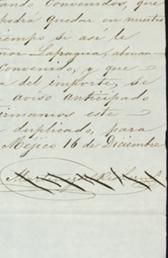 ando Convenidos, que
podrá quedar en nuestro
tiempo se así le
Lapragua, abonan
Convenido, y que
a del importe, se
aviso anticipado
firmamos este
duplicado, para
Méjico 16 de Diciembre